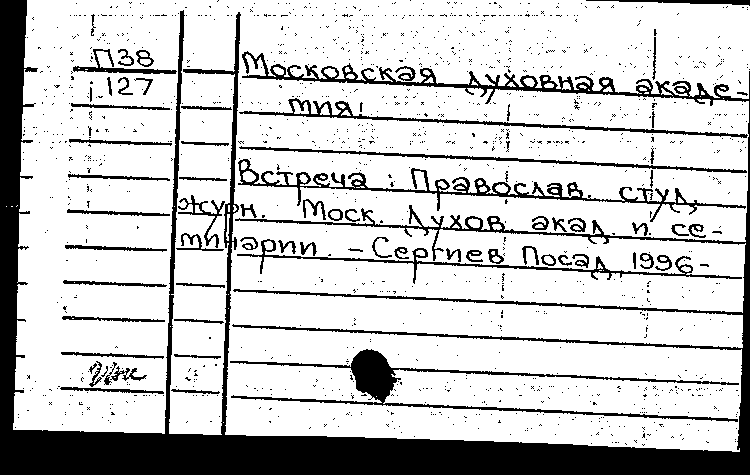 П38
127
Московская духовная акаде-
мия.
Встреча : Православ. студ.
журн. Моск. духов. акад. и се-
минарии. – Сергиев Посад, 1996-